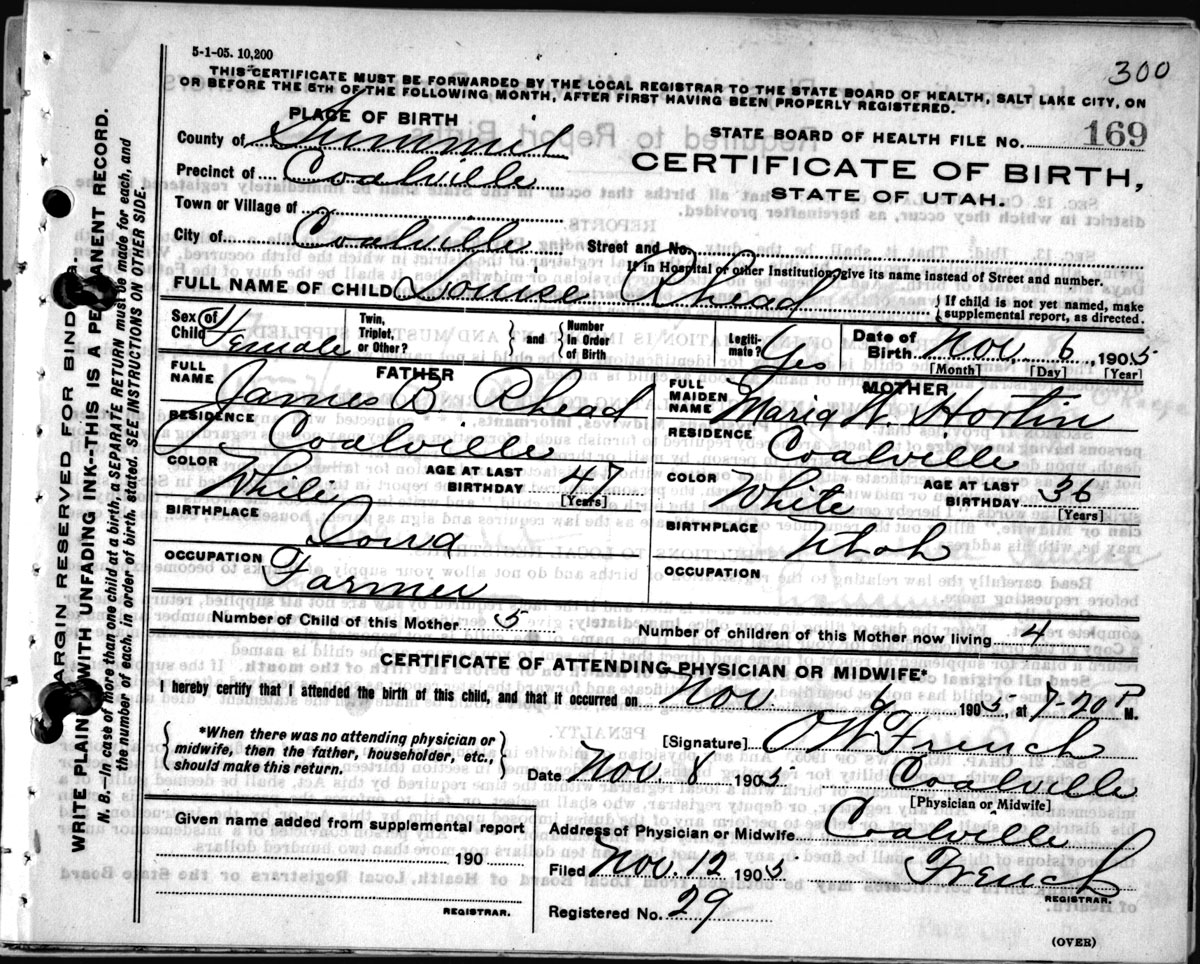 5-1-05. 10,200
300
THIS CERTIFICATE MUST BE FORWARDED BY THE LOCAL REGISTRAR TO THE STATE BOARD OF HEALTH, SALT LAKE CITY, ON
OR BEFORE THE 5TH OF THE FOLLOWING MONTH, AFTER FIRST HAVING BEEN PROPERLY REGISTERED.
PLACE OF BIRTH
STATE BOARD OF HEALTH FILE NO. 169
County of Summit
CERTIFICATE OF BIRTH,
Precinct of Coalville
STATE OF UTAH.
Town or Village of
City of Coalville Street and No.
If in Hospital or other Institution, give its name instead of Street and number.
FULL NAME OF CHILD Louise Rhead { If child is not yet named, make
supplemental report, as directed.
Sex of Child Female
Twin, Triplet, or Other?
and
Number in Order of Birth
Legiti-mate? Yes
Date of Birth Nov. 6 1905
[Month] [Day] [Year]
FATHER
FULL NAME James B Rhead
RESIDENCE Coalville
COLOR White AGE AT LAST BIRTHDAY 47 [Years]
BIRTHPLACE Iowa
OCCUPATION Farmer
MOTHER
FULL MAIDEN NAME Maria W Hortin
RESIDENCE Coalville
COLOR White AGE AT LAST BIRTHDAY 36 [Years]
BIRTHPLACE Utah
OCCUPATION
Number of Child of this Mother 5 Number of children of this Mother now living 4
CERTIFICATE OF ATTENDING PHYSICIAN OR MIDWIFE*
I hereby certify that I attended the birth of this child, and that it occurred on Nov. 6 1905, at 7-20 P M.
{ *When there was no attending physician or
midwife, then the father, householder, etc.,
should make this return. }
[Signature] O W French
Date Nov. 8 1905 Coalville
[Physician or Midwife]
Given name added from supplemental report
190
REGISTRAR.
Address of Physician or Midwife Coalville
Filed Nov. 12 1905 French
REGISTRAR.
Registered No. 29
(OVER)
MARGIN RESERVED FOR BINDING.
WRITE PLAINLY WITH UNFADING INK--THIS IS A PERMANENT RECORD.
N. B.—In case of more than one child at a birth, a SEPARATE RETURN must be made for each, and
the number of each, in order of birth, stated. SEE INSTRUCTIONS ON OTHER SIDE.